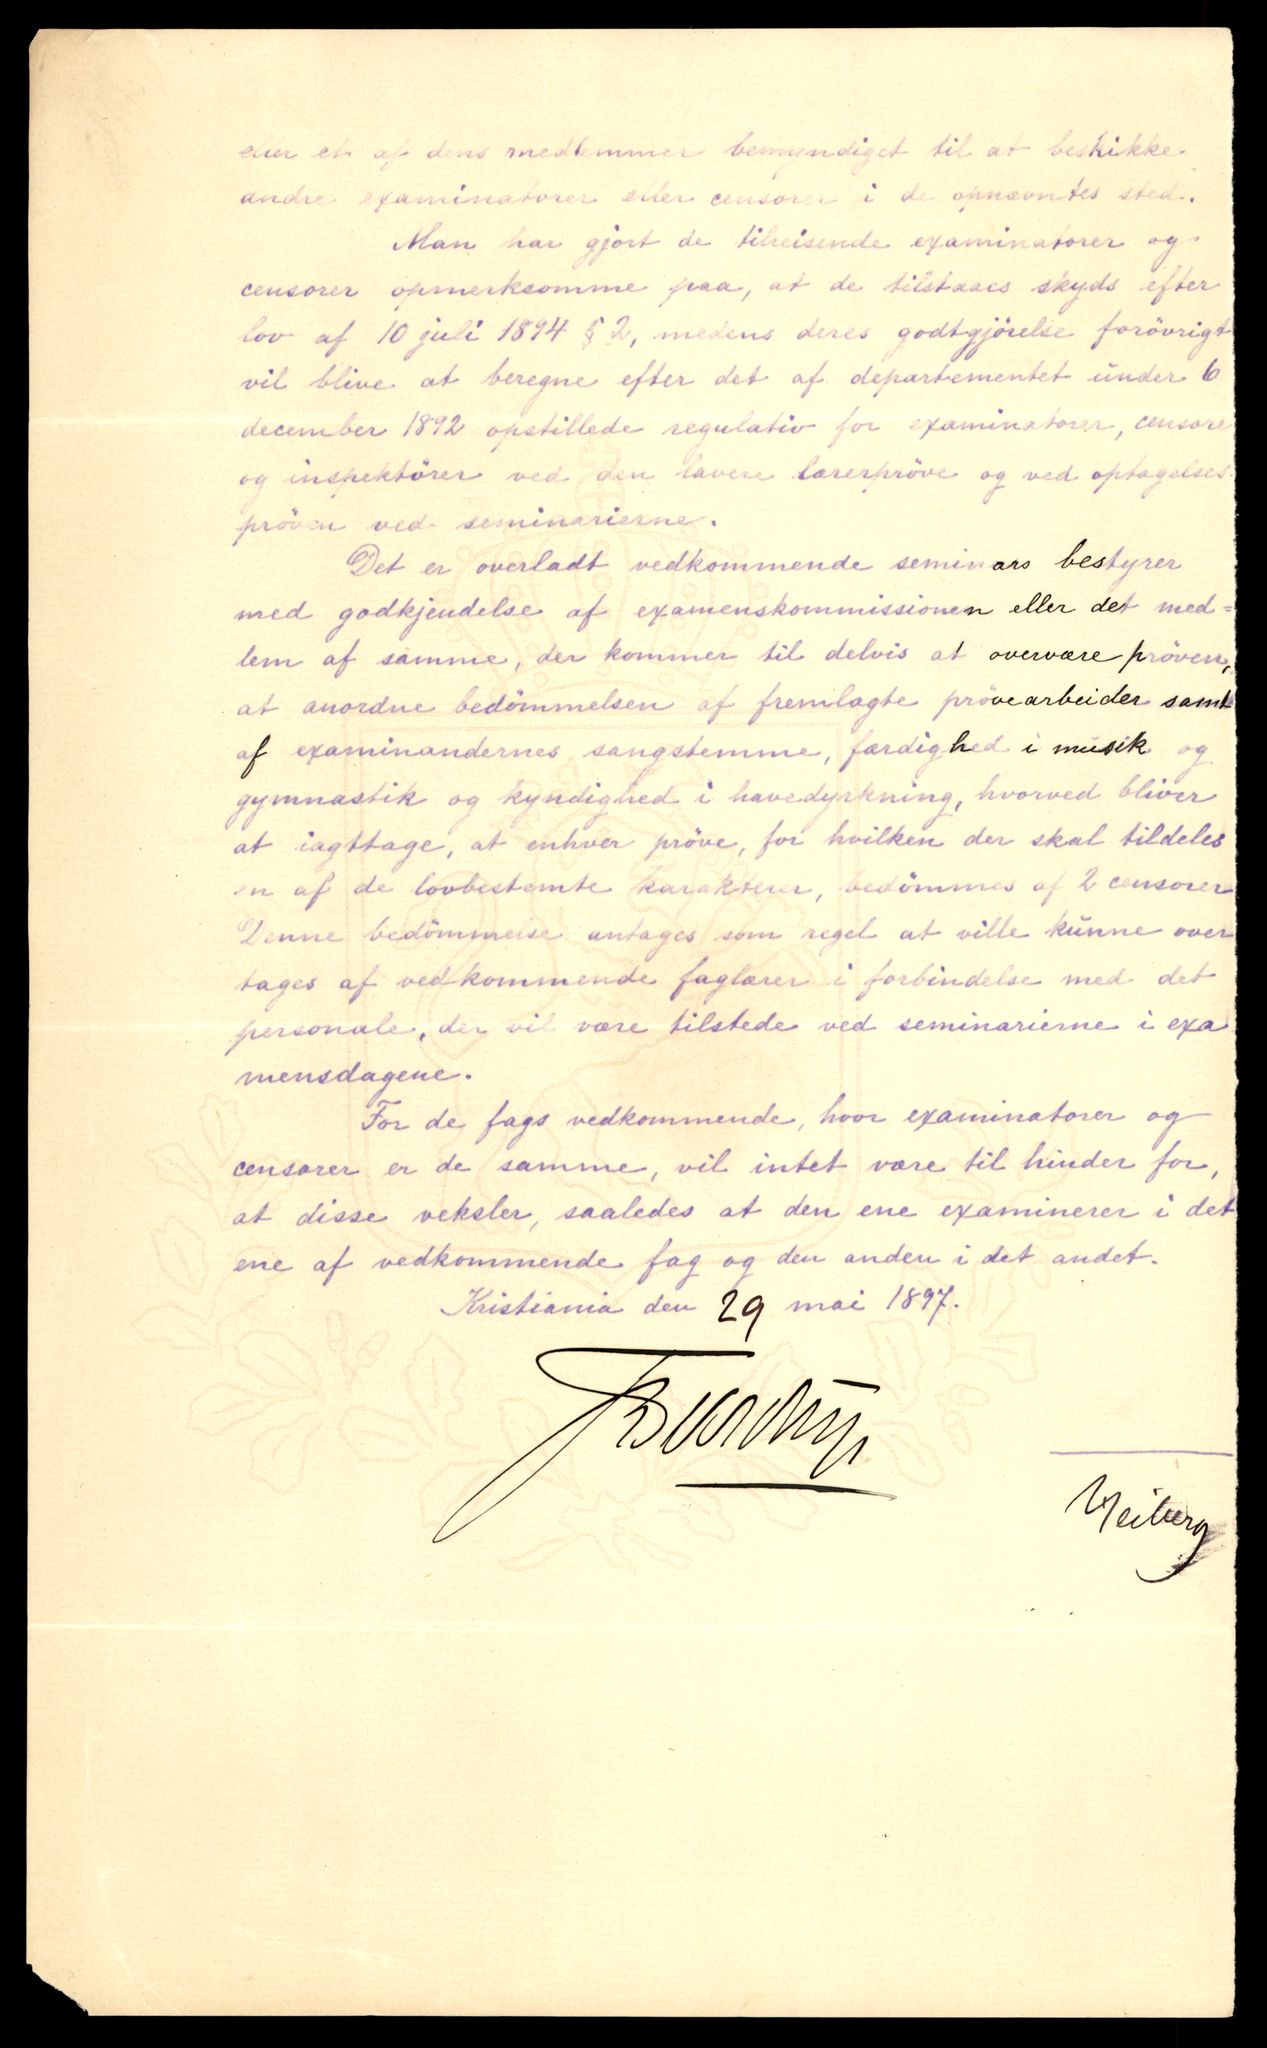 eller et af dens medlemmer bemyndiget til at beskikke
andre examinatorer eller censorer i de opnævntes sted.
Man har gjort de tilreisende examinatorer og
censorer opmerksomme paa, at de tilstaaes skyds efter
lov af 10 juli 1894 § 2, medens deres godtgjörelse forövrigt
vil blive at beregne efter det af departementet under 6
december 1892 opstillede regulativ for examinatorer, censore
og inspektörer ved den lavere lærerpröve og ved optagelses
pröven ved seminarierne.
Det er overladt vedkommende seminars bestyrer
med godkjendelse af examenskommissionen eller det med=
lem af samme, der kommer til delvis at overvære pröven,
at anordne bedömmelsen af fremlagte prövearbeider samt
af examinandernes sangstemme, færdighed i musik og
gymnastik og kyndighed i havedyrkning, hvorved bliver
at iagttage, at enhver pröve, for hvilken der skal tildeles
en af de lovbestemte karakterer, bedömmes af 2 censorer
Denne bedömmelse antages som regel at ville kunne over
tages af vedkommende faglærer i forbindelse med det
personale, der vil være tilstede ved seminarierne i exa
mensdagene.
For de fags vedkommende, hvor examinatorer og
censorer er de samme, vil intet være til hinder for,
at disse veksler, saaledes at den ene examinerer i det
ene af vedkommende fag og den anden i det andet.
Kristiania den 29 mai 1897.
Heiberg